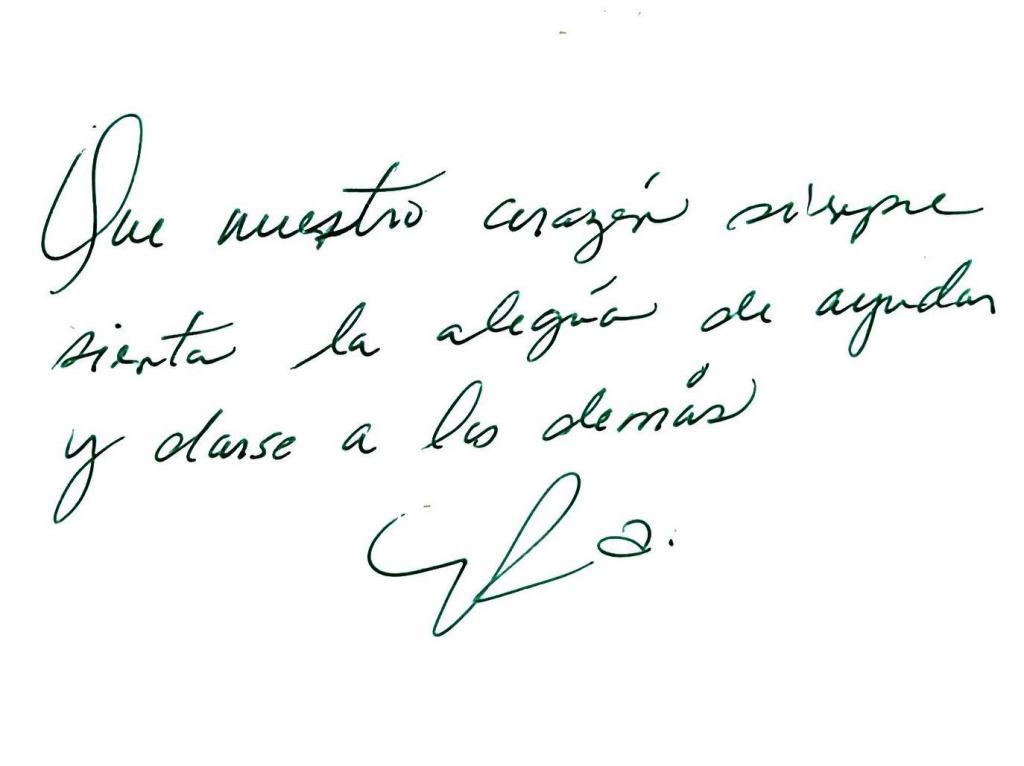 Que nuestro corazón siempre
sienta la alegría de ayudar
y darse a los demás